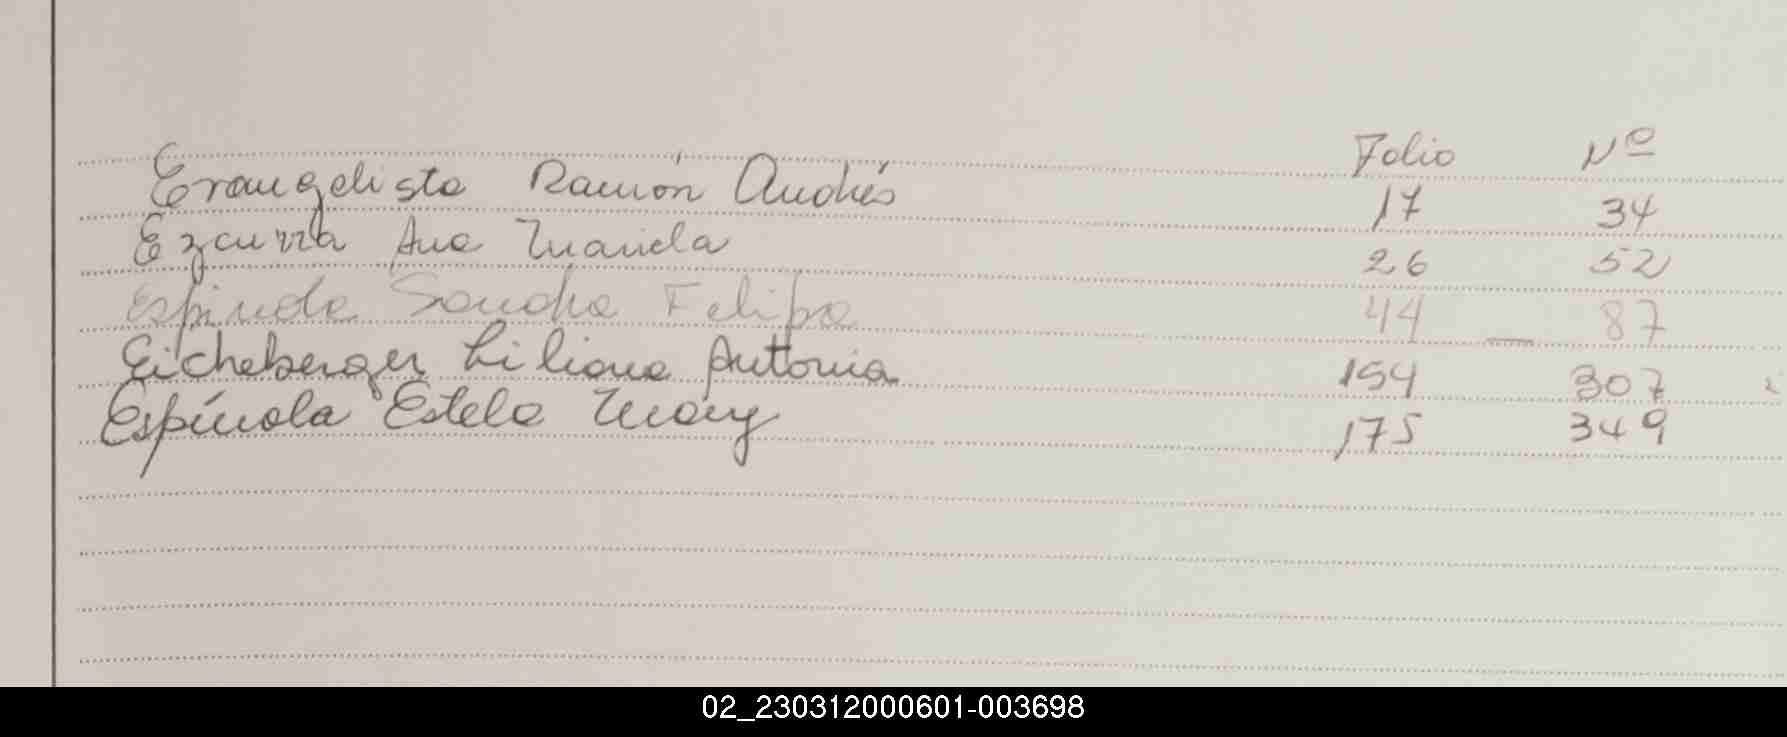 Folio Nº
Evangelista Ramón Andrés 17 34
Ezcurra Ana Mariela 26 52
Espinola Sandra Felipa 44 — 87
Eicheberger Liliana Antonia 154 307
Espínola Estela Mary 175 349
02_230312000601-003698